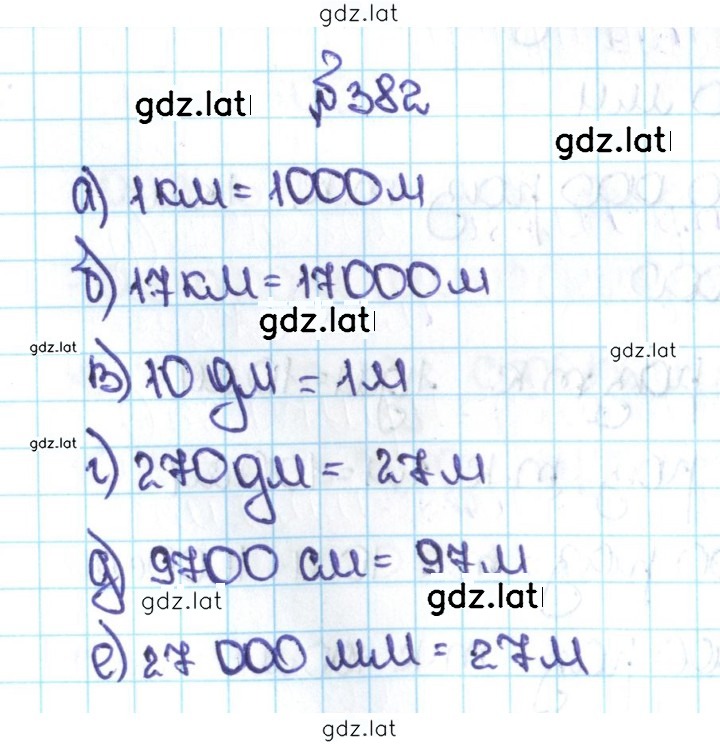 gdz.lat
№382
gdz.lat
gdz.lat
а) 1км = 1000м
б) 17км = 17000м
gdz.lat
gdz.lat
gdz.lat
в) 10 дм = 1м
gdz.lat
г) 270дм = 27м
д) 9700 см = 97м
gdz.lat
gdz.lat
е) 27 000 мм = 27м
gdz.lat